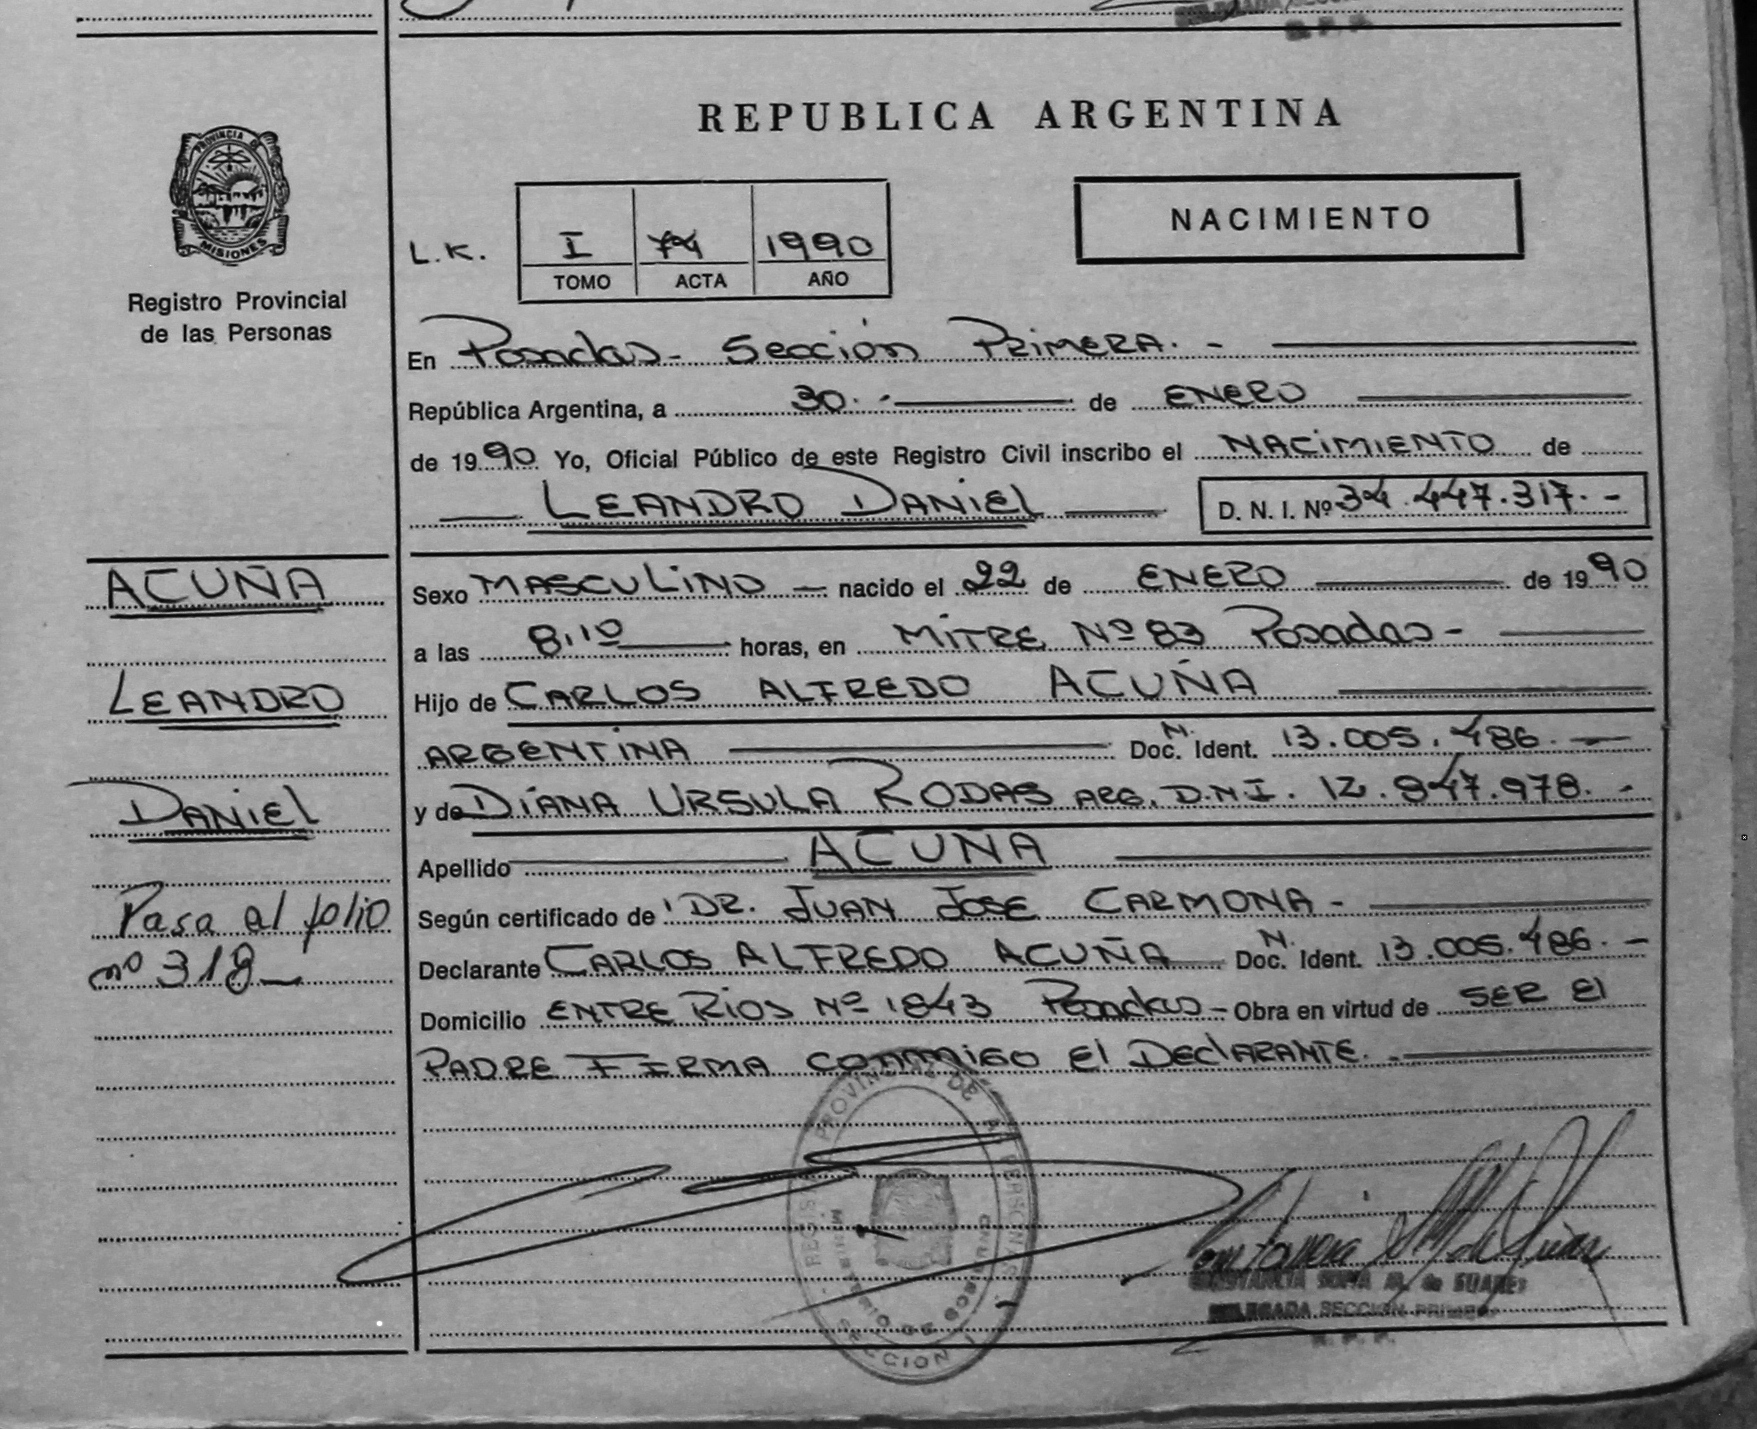 PROVINCIA DE
MISIONES
Registro Provincial
de las Personas
REPUBLICA ARGENTINA
NACIMIENTO
L.K. I 1990
TOMO ACTA AÑO
En Posadas- Sección PRIMERA. -
República Argentina, a 30.- de ENERO
de 1990 Yo, Oficial Público de este Registro Civil inscribo el NACIMIENTO de
LEANDRO DANIEL D. N. I. Nº 34.447.317.-
ACUÑA
LEANDRO
DANIEL
Pasa al folio
nº 318
Sexo MASCULINO - nacido el 22 de ENERO de 1990
a las 8,10 horas, en MITRE Nº 83 Posadas-
Hijo de CARLOS ALFREDO ACUÑA
ARGENTINA Doc. N. Ident. 13.005.486.-
y de DIANA URSULA RODAS ARG. D.N.I. 12.847.978.-
Apellido ACUÑA
Según certificado de DR. JUAN JOSE CARMONA-
Declarante CARLOS ALFREDO ACUÑA Doc. N. Ident. 13.005.486.-
Domicilio ENTRE RIOS Nº 1843 Posadas- Obra en virtud de SER El
PADRE FIRMA CONMIGO El DEClARANTE.-
CONSTANCIA SOFIA M. de SUAREZ
DELEGADA SECCION PRIMERA
R. P. P.